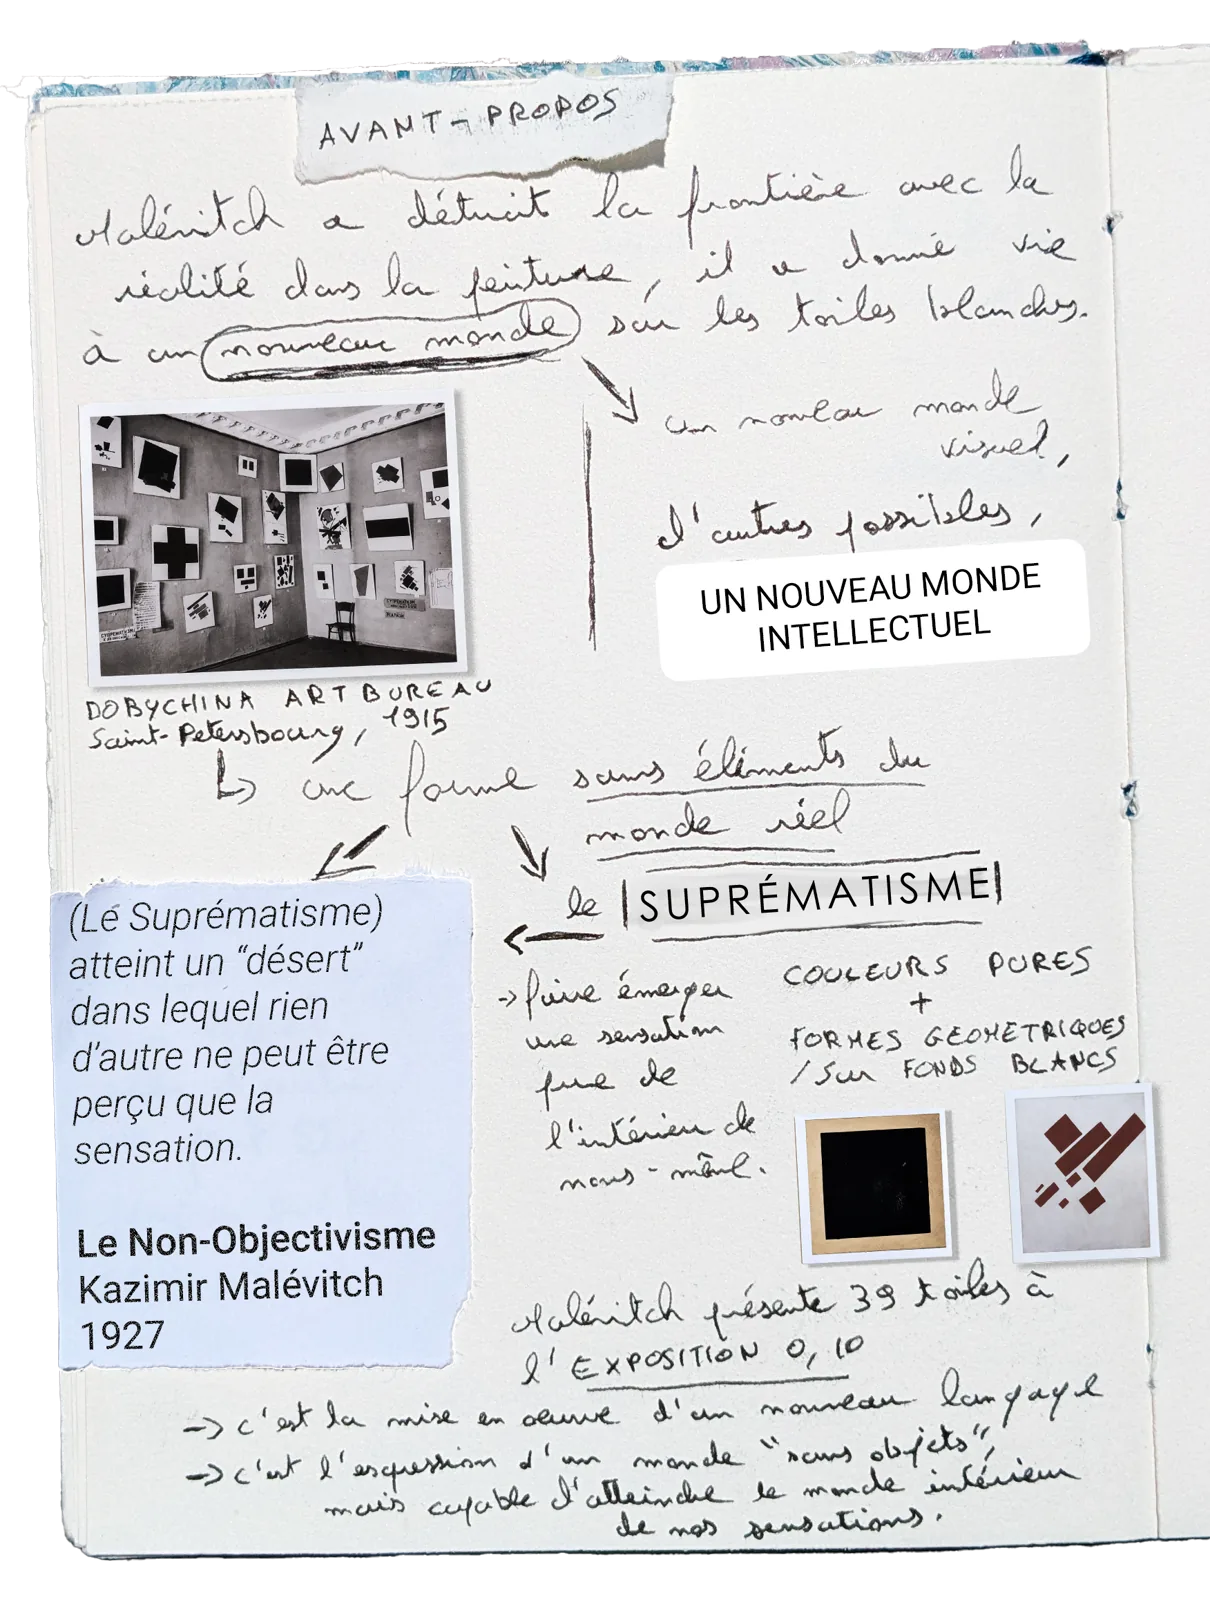 AVANT-PROPOS
Malévitch a détruit la frontière avec la
réalité dans la peinture, il a donné vie
à un nouveau monde sur les toiles blanches.
un nouveau monde
visuel,
d'autres possibles,
UN NOUVEAU MONDE
INTELLECTUEL
DOBYCHINA ART BUREAU
Saint-Petersbourg, 1915
une forme sans éléments du
monde réel
le |SUPRÉMATISME|
(Le Suprématisme)
atteint un “désert”
dans lequel rien
d’autre ne peut être
perçu que la
sensation.
Le Non-Objectivisme
Kazimir Malévitch
1927
→ faire émerger
une sensation
pure de
l'intérieur de
nous-même.
COULEURS PURES
+
FORMES GEOMETRIQUES
/ Sur FONDS BLANCS
Malévitch présente 39 toiles à
l'EXPOSITION 0,10
→ c'est la mise en oeuvre d'un nouveau langage
→ c'est l'expression d'un monde "sans objets",
mais capable d'atteindre le monde intérieur
de nos sensations.